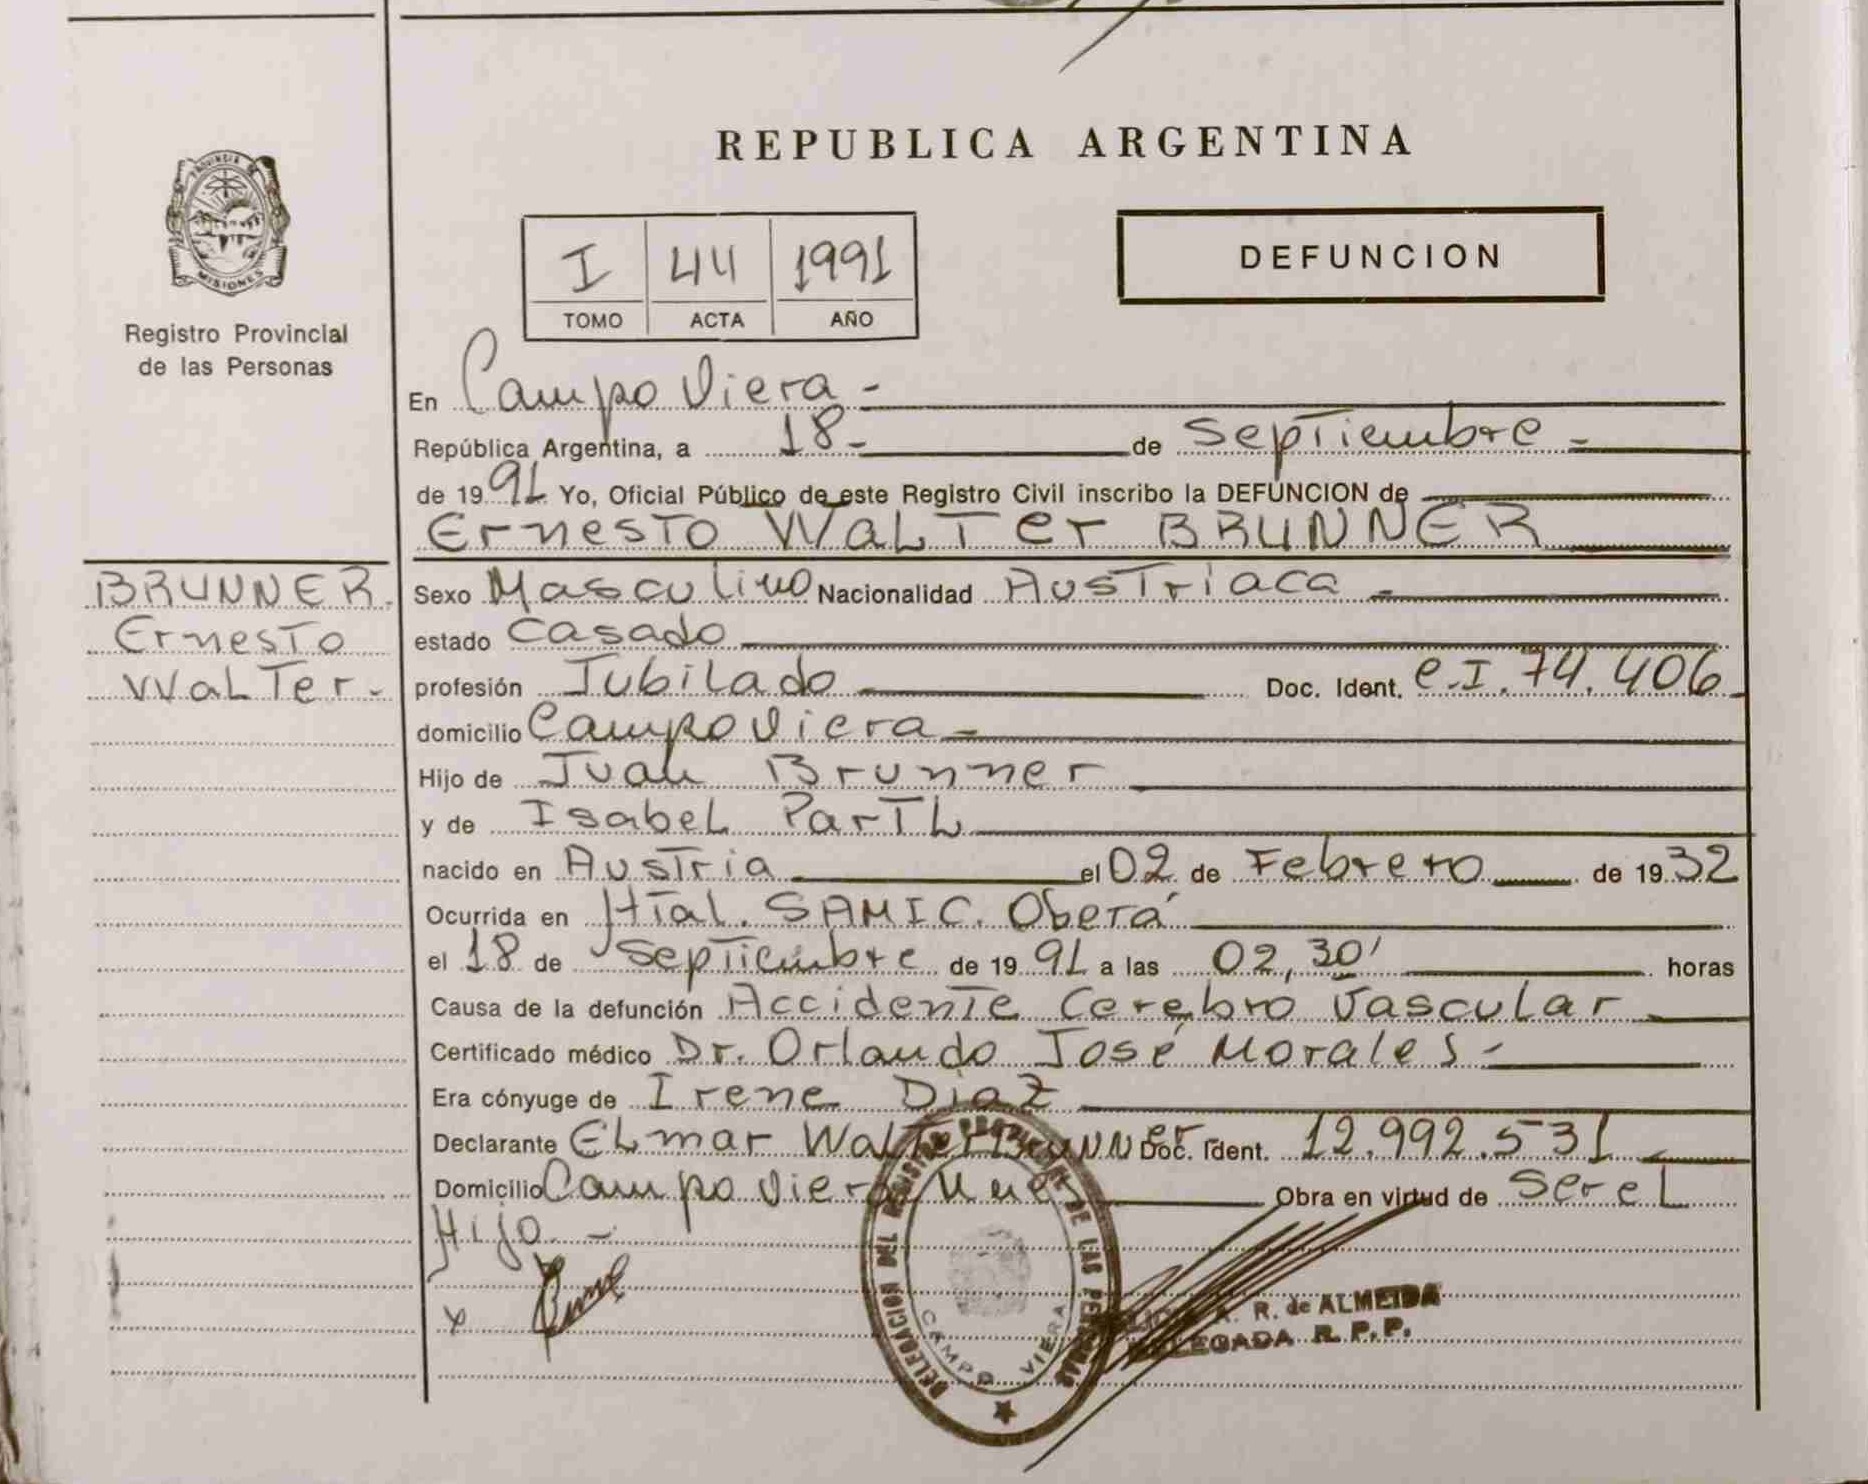 REPUBLICA ARGENTINA
PROVINCIA DE
MISIONES
Registro Provincial
de las Personas
I 44 1991
TOMO ACTA AÑO
DEFUNCION
En Campo Viera -
República Argentina, a 18 - de Septiembre -
de 1991 Yo, Oficial Público de este Registro Civil inscribo la DEFUNCION de
Ernesto Walter BRUNNER
BRUNNER.
Ernesto
Walter -
Sexo Masculino Nacionalidad Austríaca -
estado Casado
profesión Jubilado Doc. Ident. C.I. 74.406
domicilio Campo Viera -
Hijo de Juan Brunner
y de Isabel Partl
nacido en Austria el 02 de Febrero de 1932
Ocurrida en Htal. SAMIC. Oberá
el 18 de Septiembre de 1991 a las 02,30' horas
Causa de la defunción Accidente Cerebro Vascular
Certificado médico Dr. Orlando José Morales -
Era cónyuge de Irene Diaz
Declarante Elmar Walter Brunner Doc. Ident. 12.992.531
Domicilio Campo Viera Mnes Obra en virtud de Ser el
Hijo -
x
DELEGACION DEL REGISTRO PROVINCIAL DE LAS PERSONAS
CAMPO VIERA
A. R. de ALMEIDA
DELEGADA R. P. P.